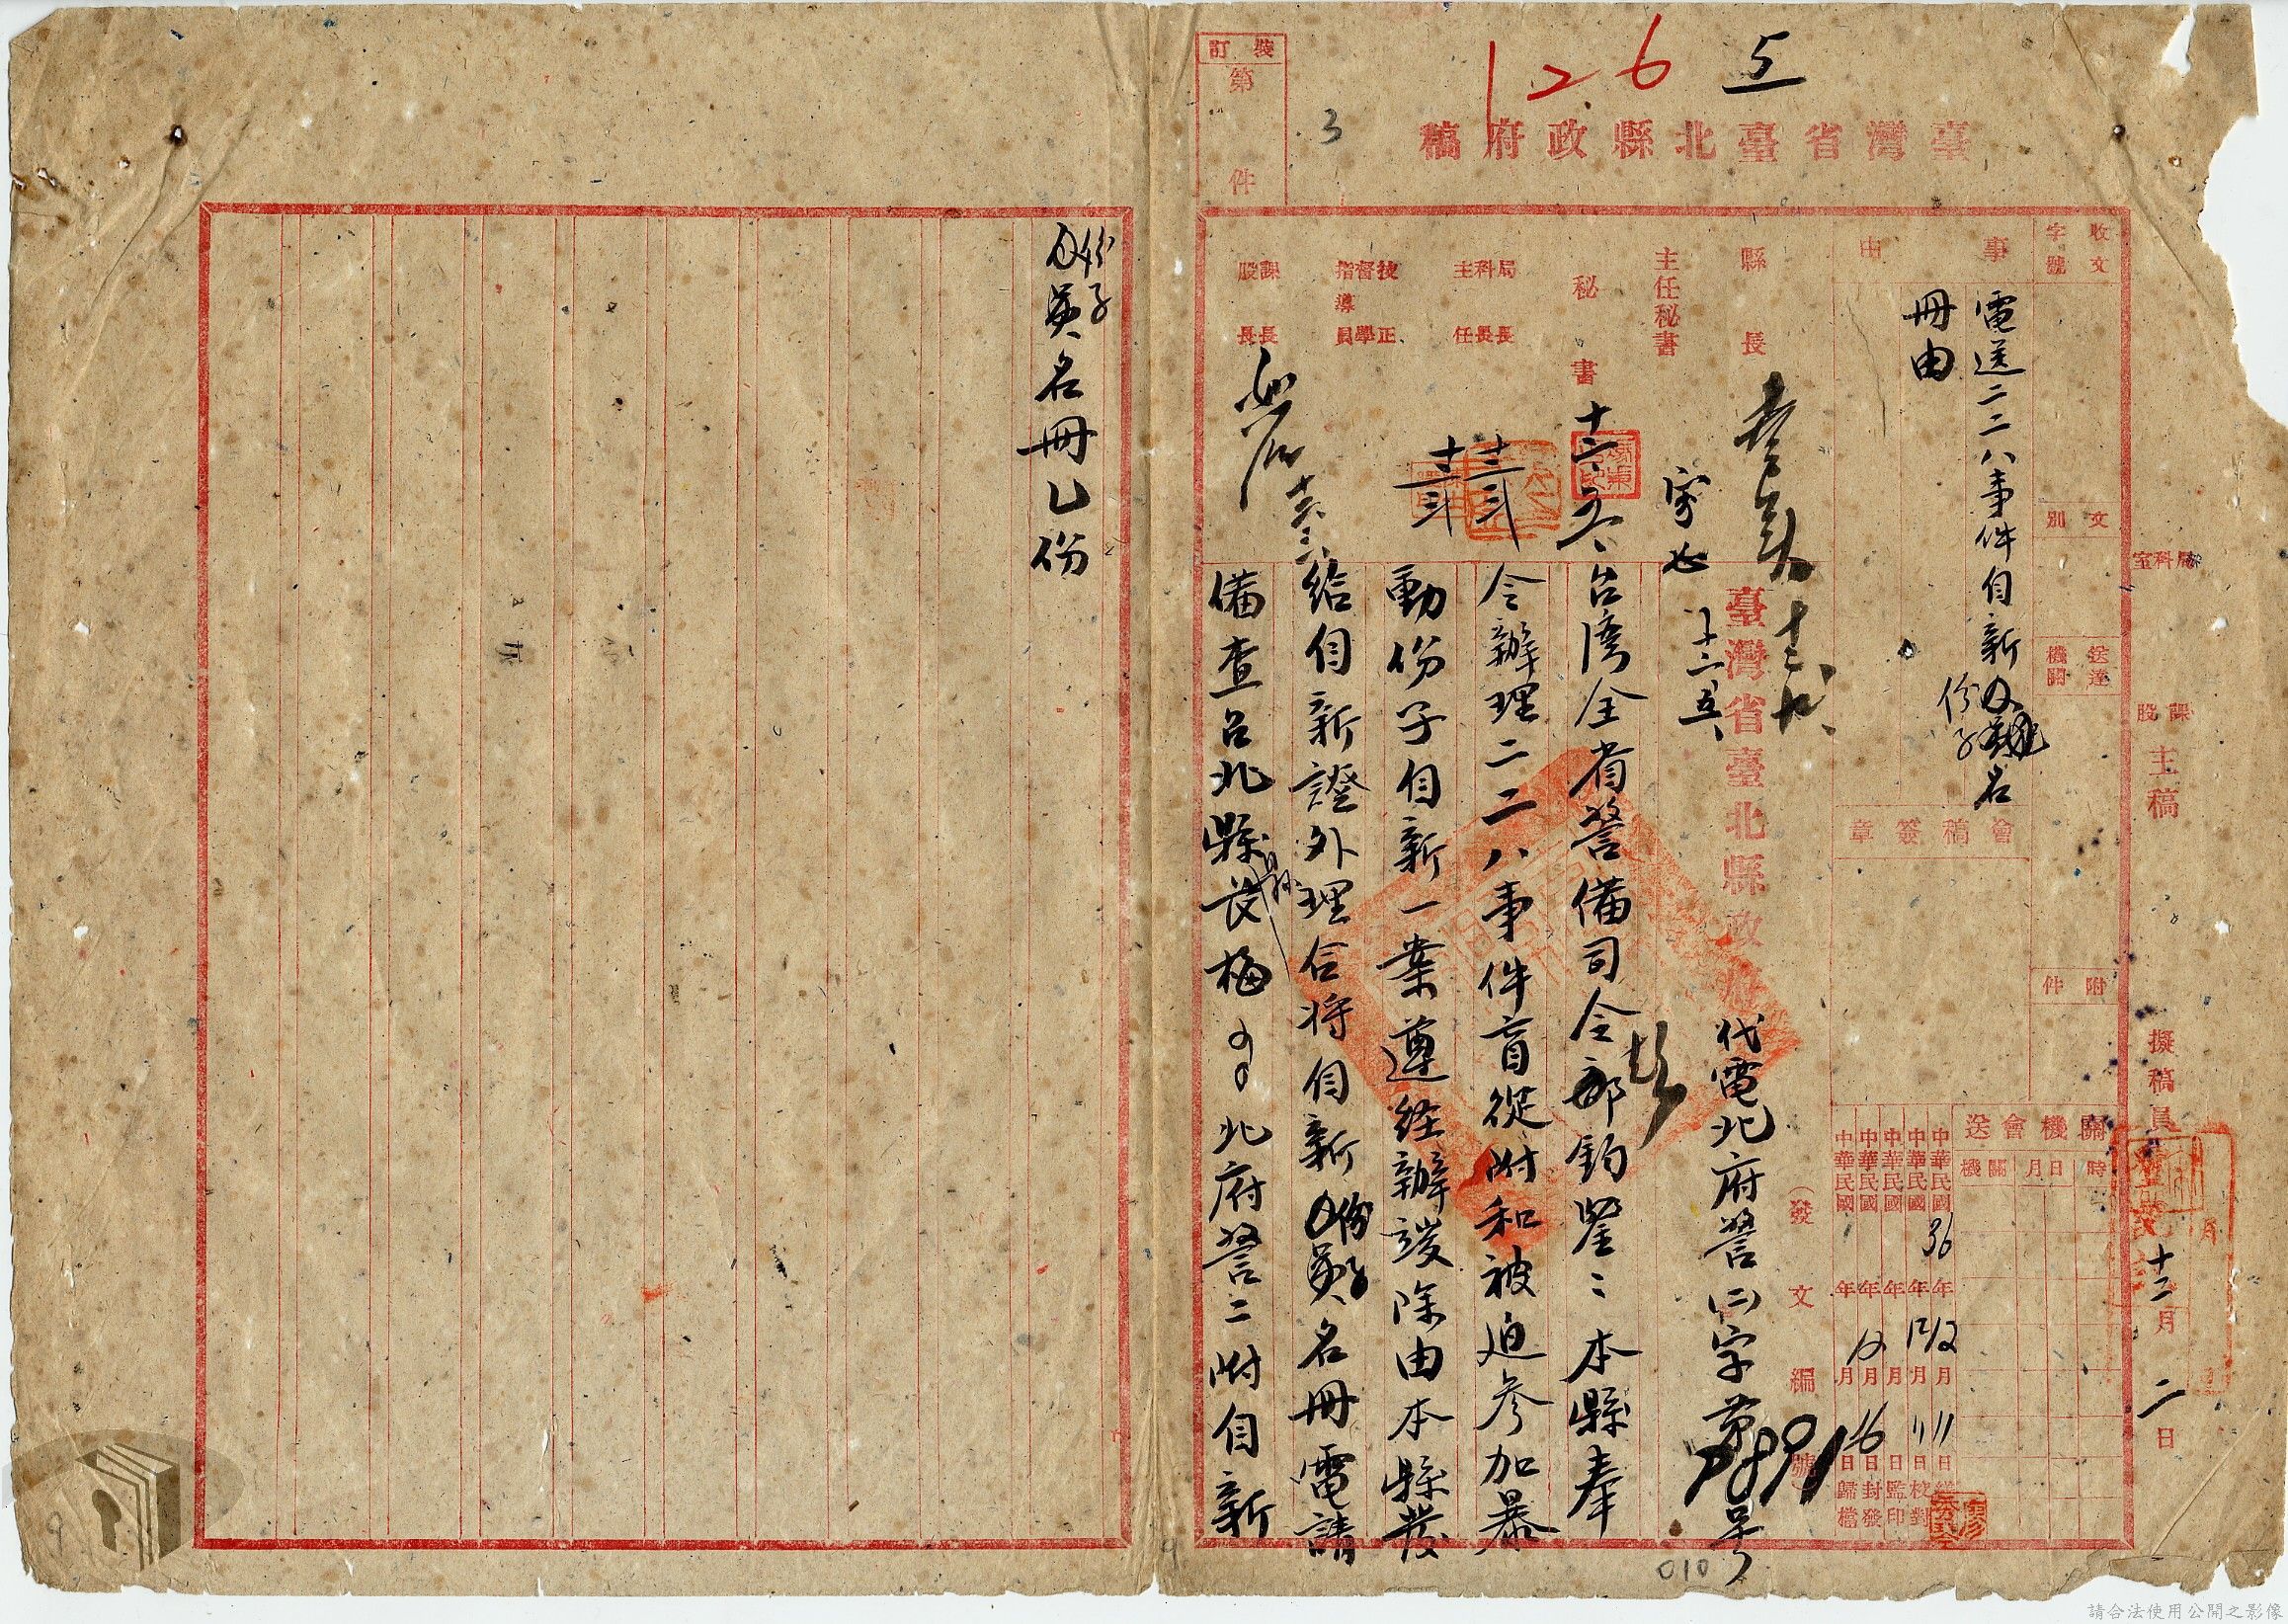 126 5
3
裝訂
第 件
臺灣省臺北縣政府稿
收文
字號
文別
送達機關
附件
事由
電送二二八事件自新份子名
冊由
會稿簽章
關機會送
時 月日 機關
中華民國36年12月11日繕
中華民國 年12月11日校對
中華民國 年 月 日監印
中華民國 年12月16日封發
中華民國 年 月 日歸檔
局科室
課股
主稿
擬稿員
十二月二日
縣長
主任秘書
十二、五
秘書
十二、五、
局長
科長
主任
十二
技正
督學
指導員
十二
課長
股長
十二
臺灣省臺北縣政府代電北府警(二)字第7891號
(發文編號)
台灣全省警備司令部鈞鑒:本縣奉
令辦理二二八事件盲從附和被迫參加暴
動份子自新一案遵經辦竣除由本縣發
給自新證外理合將自新份子名冊電請
備查台北縣長梅 北府警二附自新
份子名冊乙份
010
9
請合法使用公開之影像